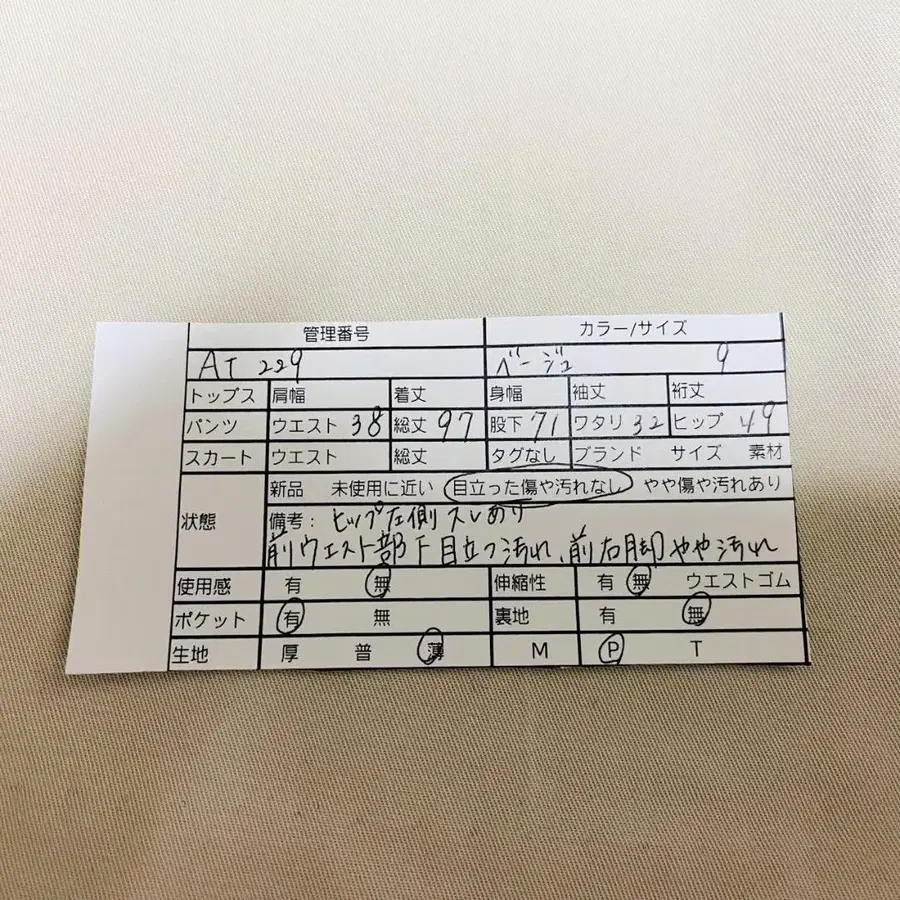 管理番号 カラー/サイズ
AT 229 ベージュ 9
トップス 肩幅 着丈 身幅 袖丈 裄丈
パンツ ウエスト 38 総丈 97 股下 71 ワタリ 32 ヒップ 49
スカート ウエスト 総丈 タグなし ブランド サイズ 素材
新品 未使用に近い 目立った傷や汚れなし やや傷や汚れあり
状態
備考: ヒップ左側スレあり
前ウエスト部下目立つ汚れ、前右脚やや汚れ
使用感 有 無 伸縮性 有 無 ウエストゴム
ポケット 有 無 裏地 有 無
生地 厚 普 薄 M P T